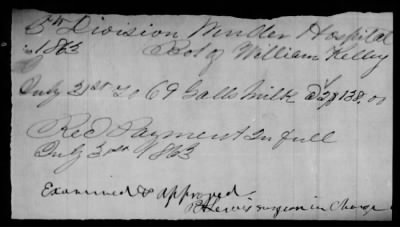 5th Division Wendler Hospital
1863 Bot of William Kelley
July 31st To 69 Galls Milk @ 2/ $138.00
Rec Payment In full
July 31st 1863
Examined & approved
P. Hewis surgeon in charge